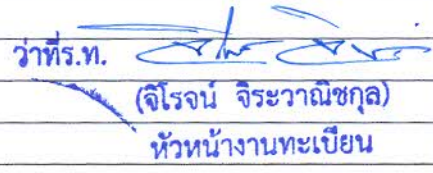 ว่าที่ร.ท.
(จิโรจน์ จิระวาณิชกุล)
หัวหน้างานทะเบียน